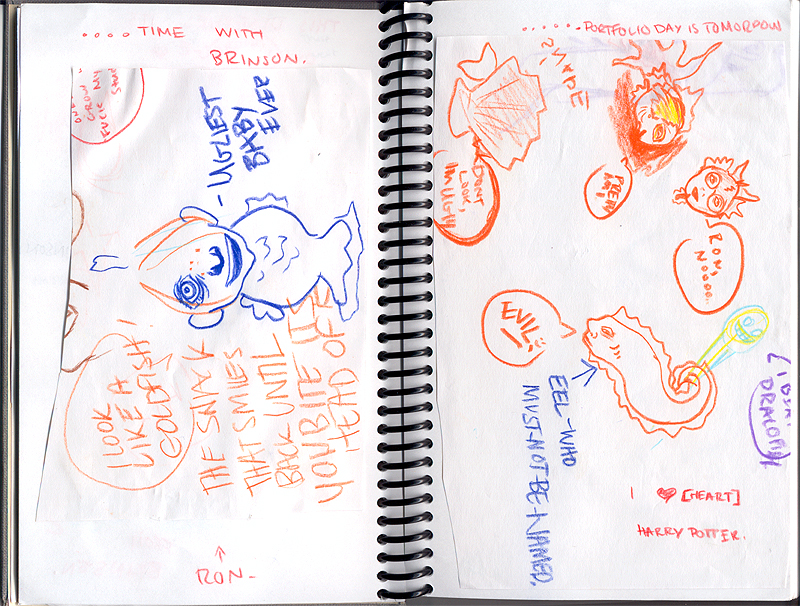 ....TIME WITH
BRINSON.
GROW
FUCK MY
- UGLIEST
BABY
EVER
I LOOK
LIKE A
GOLDFISH!
THE SNACK
THAT SMILES
BACK UNTIL
YOU BITE ITS
HEAD OFF
↑
RON-
......PORTFOLIO DAY IS TOMORROW
DONT
LOOK,
IM UGLY
RON,
NOOOO..
EVIL
!!
EEL-WHO
MUST-NOT-BE-NAMED.
I ♥ [HEART]
HARRY POTTER.